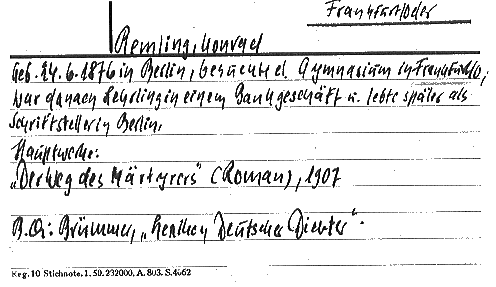 Frankfurt/Oder
Remling, Konrad
Geb. 24. 6. 1876 in Berlin, besuchte d. Gymnasium in Frankfurt/O,
war danach Lehrling in einem Bankgeschäft u. lebte später als
Schriftsteller in Berlin.
Hauptwerke:
„Der Weg des Märtyrers" (Roman), 1907
B.Qu: Brümmer, „Lexikon Deutscher Dichter".
Krg. 10 Stichnote. 1. 50. 232000. A. 803. S. 4662